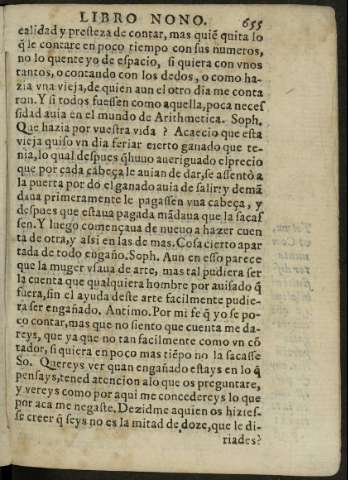 LIBRO NONO. 655
ealidad y presteza de contar, mas quiẽ quita lo
q̃ le contare en poco tiempo con sus numeros,
no lo quente yo de espacio, si quiera con vnos
tantos, o contando con los dedos, o como ha-
zia vna vieja, de quien aun el otro dia me conta
ron. Y si todos fuessen como aquella, poca neces
sidad auia en el mundo de Arithmetica. Soph.
Que hazia por vuestra vida? Acaecio que esta
vieja quiso vn dia feriar cierto ganado que te-
nia, lo qual despues q̃ huuo aueriguado el precio
que por cada cabeça le auian de dar, se assentò a
la puerta por dó el ganado auia de salir: y demã
daua primeramente le pagassen vna cabeça, y
despues que estaua pagada mãdaua que la sacas
sen. Y luego començaua de nueuo a hazer cuen
ta de otra, y assi en las de mas. Cosa cierto apar
tada de todo engaño. Soph. Aun en esso parece
que la muger vsaua de arte, mas tal pudiera ser
la cuenta que qualquiera hombre por auisado q̃
fuera, sin el ayuda deste arte facilmente pudie-
ra ser engañado. Antimo. Por mi fe q̃ yo se po-
co contar, mas que no siento que cuenta me da-
reys, que ya que no tan facilmente como vn cõ
tador, si quiera en poco mas tiẽpo no la sacasse
So. Quereys ver quan engañado estays en lo q̃
pensays, tened atencion a lo que os preguntare,
y vereys como por aqui me concedereys lo que
por aca me negaste. Dezidme a quien os hizies-
se creer q̃ seys no es la mitad de doze, que le di-
riades?